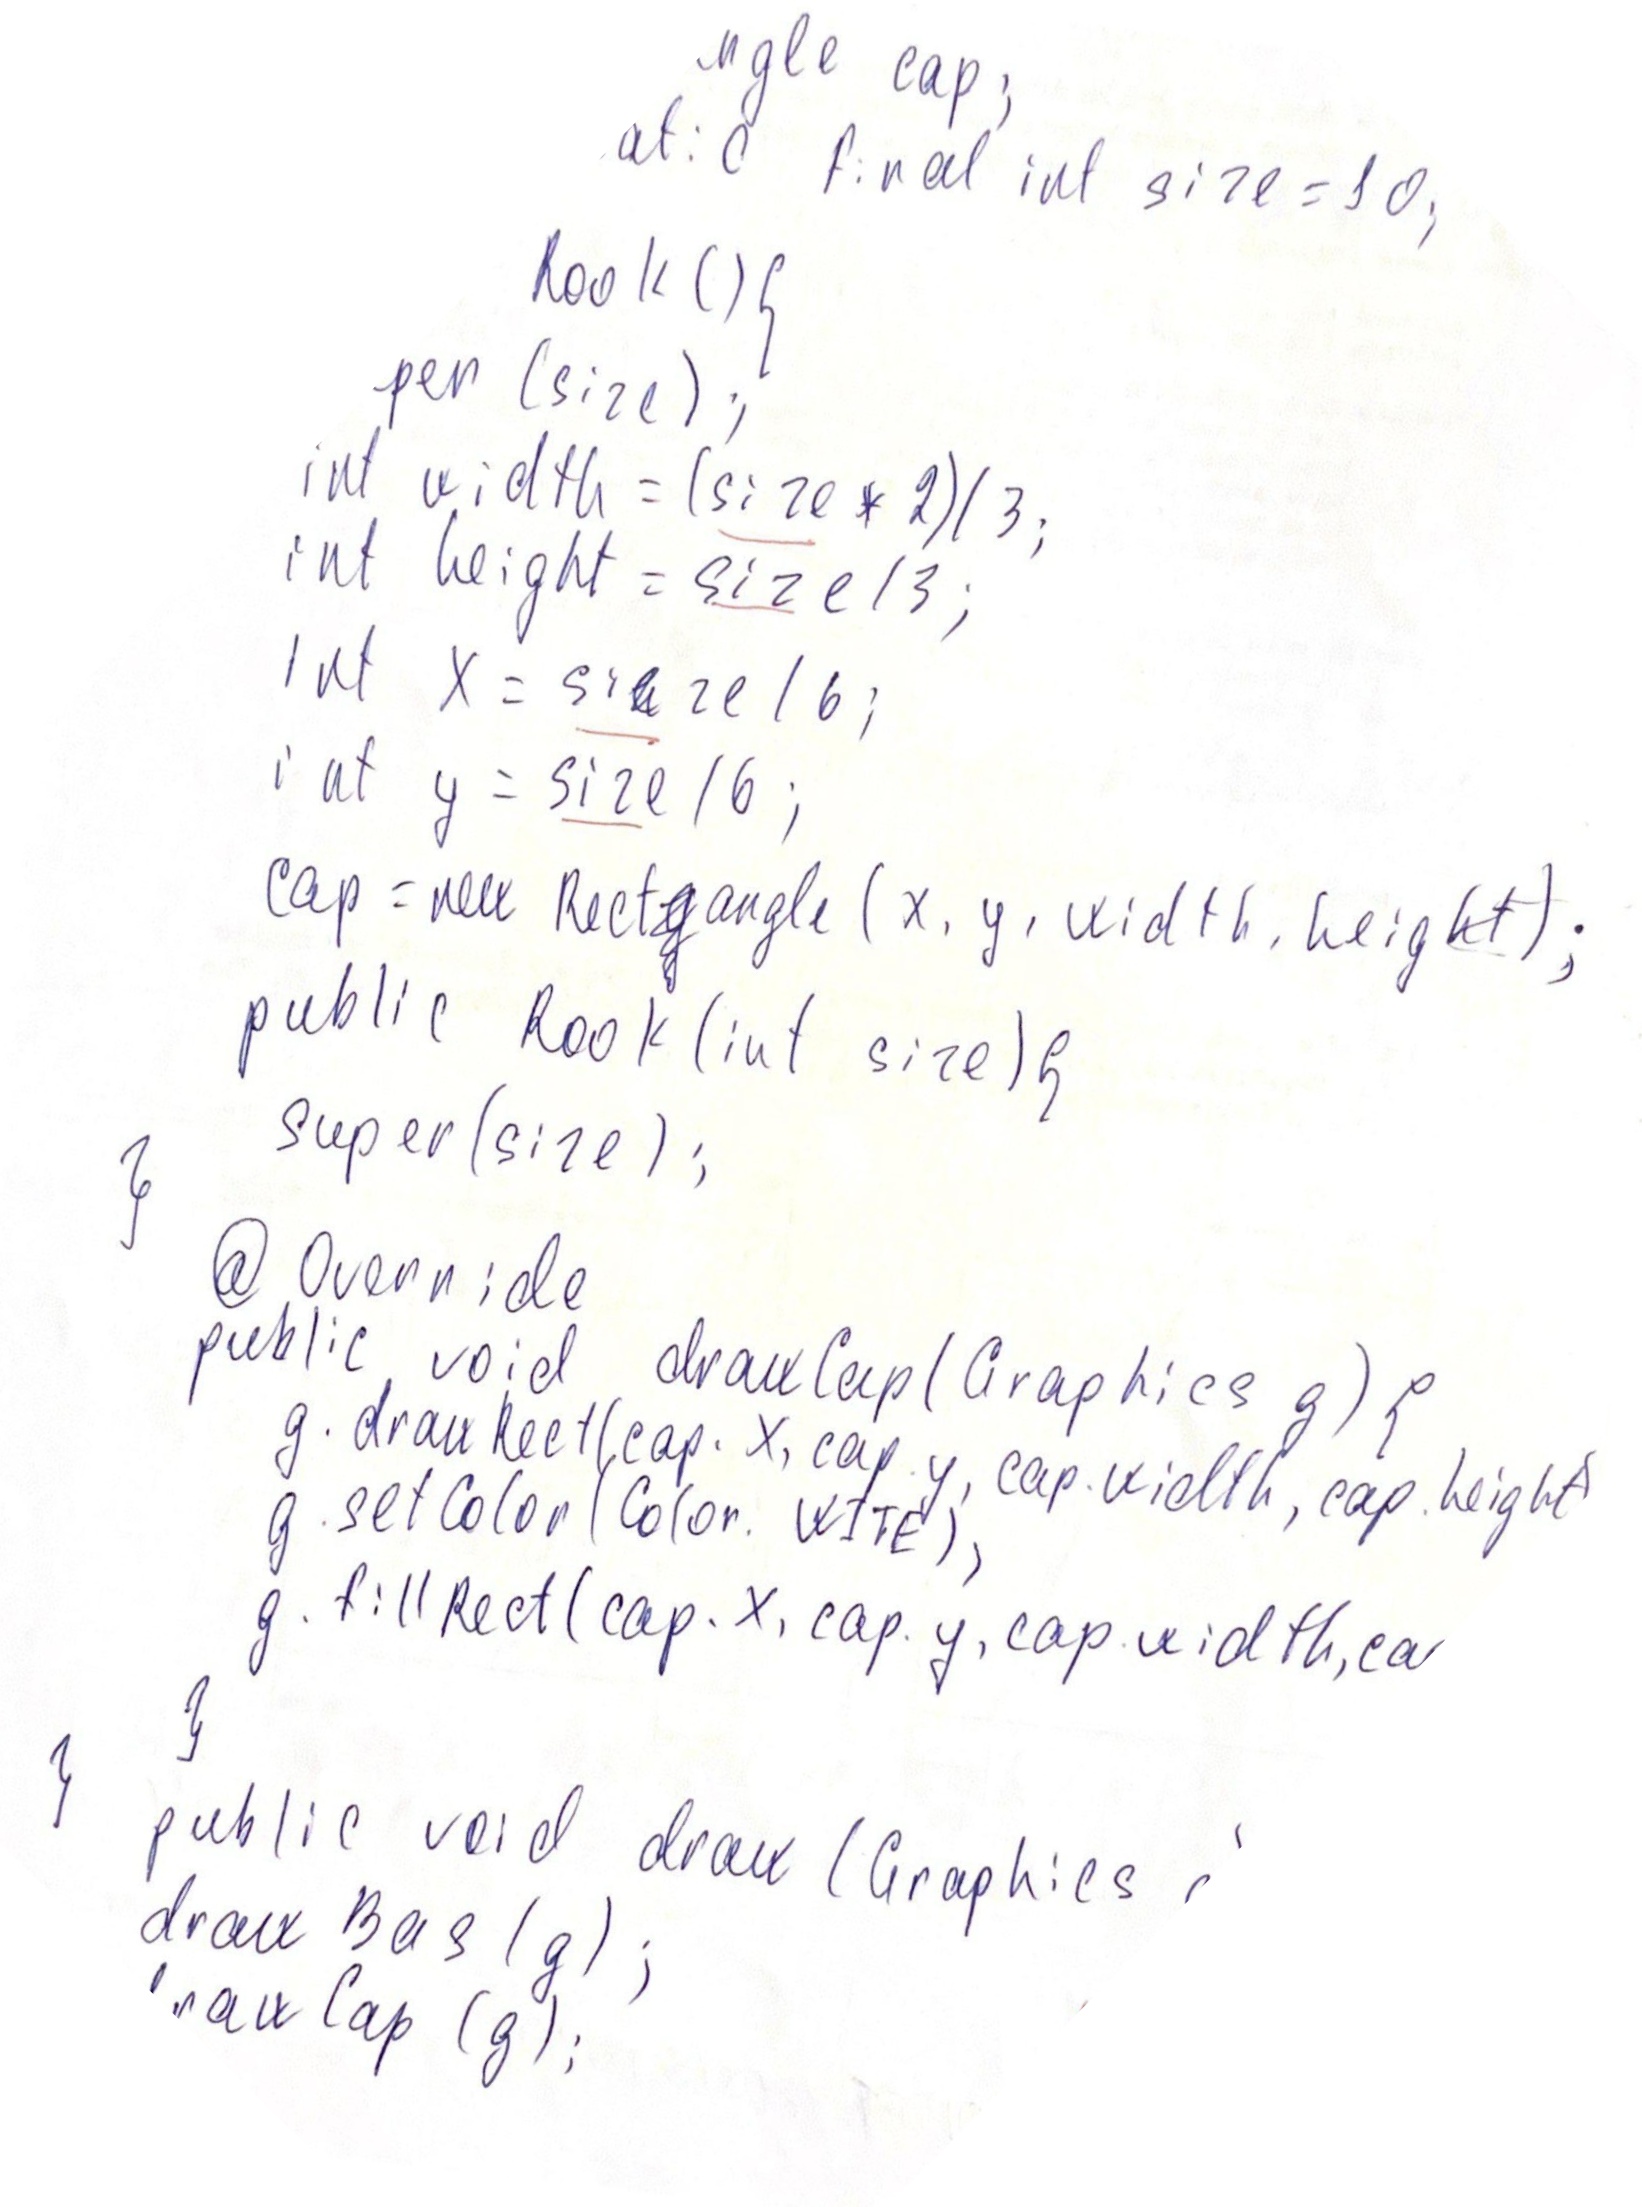 ngle cap;
atic final int size = 10;
Rook(){
per (size);
int width = (size * 2)/3;
int height = size/3;
int x = size/6;
int y = size/6;
cap = new Rectangle(x, y, width, height);
public Rook(int size){
super(size);
}
@Override
public void drawCap(Graphics g){
g.drawRect(cap.x, cap.y, cap.width, cap.height
g.setColor(Color.WITE);
g.fillRect(cap.x, cap.y, cap.width, ca
}
}
public void draw(Graphics
drawBas(g);
rawCap(g);